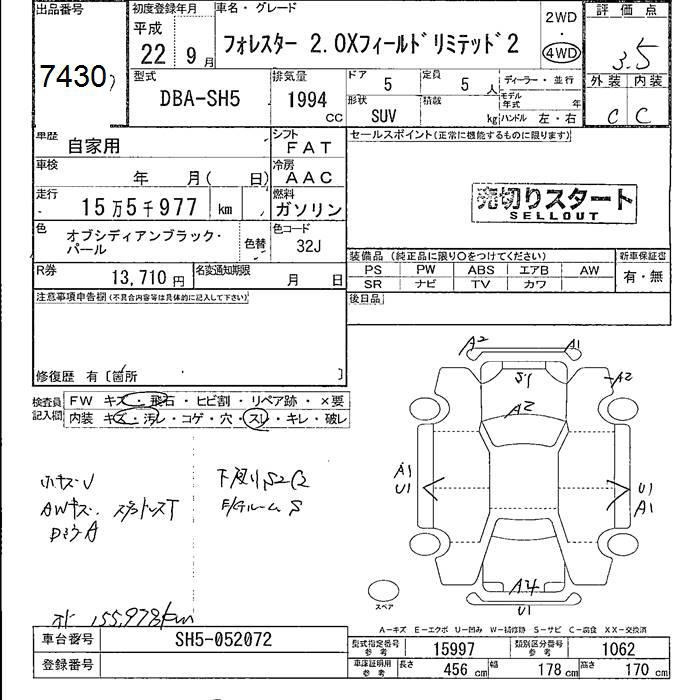 出品番号
7430
初度登録年月
平成
22年9月
車名・グレード
フォレスター 2.0Xフィールドリミテッド2
2WD
・
4WD
評価点
3.5
型式
DBA-SH5
排気量
1994
CC
ドア
5
定員
5人
ディーラー・並行
形状
SUV
積載
kg
モデル年式
年
ハンドル 左・右
外装 内装
C C
車歴
自家用
シフト
FAT
車検
年 月( 日)
冷房
AAC
走行
15万5千977 km
燃料
ガソリン
色
オブシディアンブラック・
パール
色替
色コード
32J
R券
13,710円
名変通知期限
月 日
セールスポイント(正常に機能するものに限ります)
売切りスタート
SELLOUT
装備品(純正品に限り○をつけてください)
PS PW ABS エアB AW
SR ナビ TV カワ
新車保証書
有・無
後日品
注意事項申告欄(不具合内容等は具体的に記入して下さい)
修復歴 有〔箇所 〕
検査員
記入欄
FW キズ・飛石・ヒビ割・リペア跡・×要
内装 キズ・汚レ・コゲ・穴・スレ・キレ・破レ
小キズU
AWキズ
下廻りS2C2
E/Gルーム S
オド 155,978km
A2
A1
S1
A2
A2
A1
U1
U1
A1
A4
U1
スペア
A-キズ E-エクボ U-凹み W-補修跡 S-サビ C-腐食 XX-交換済
車台番号
SH5-052072
登録番号
型式指定番号
参考
15997
類別区分番号
参考
1062
車庫証明用
参考
長さ
456cm
幅
178cm
高さ
170cm